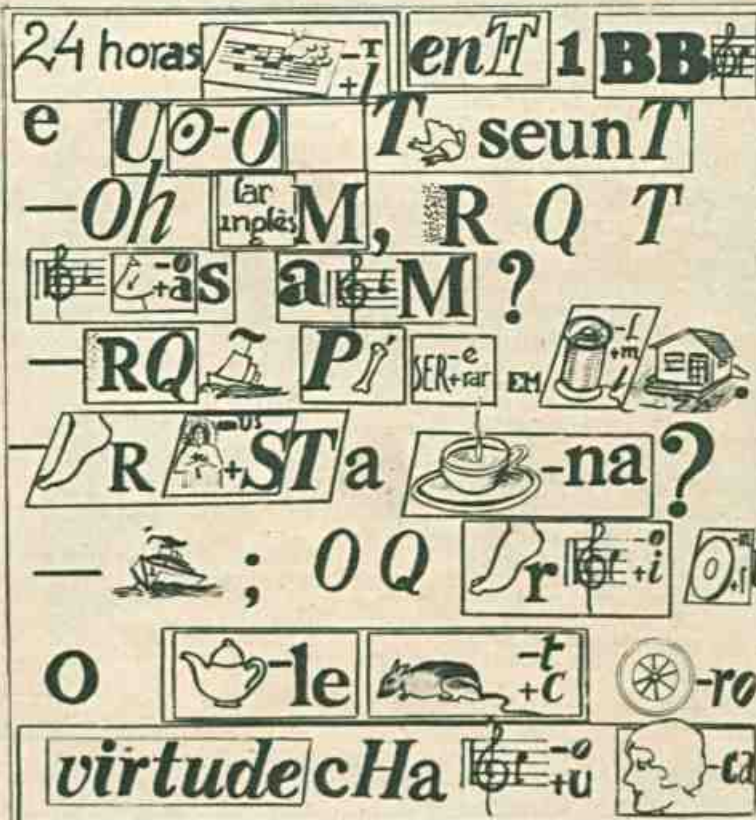 24 horas -T +l enTT 1 BB
e UO-O T seunT
—Oh lar inglês M, R Q T
-o +a s a M ?
— RQ ~ P SER -e +rar EM -f +m l .
— R -us +S T a -na ?
— ; O Q r -o +i
O -le -t +C -ro
virtude cHa -o +u -ca